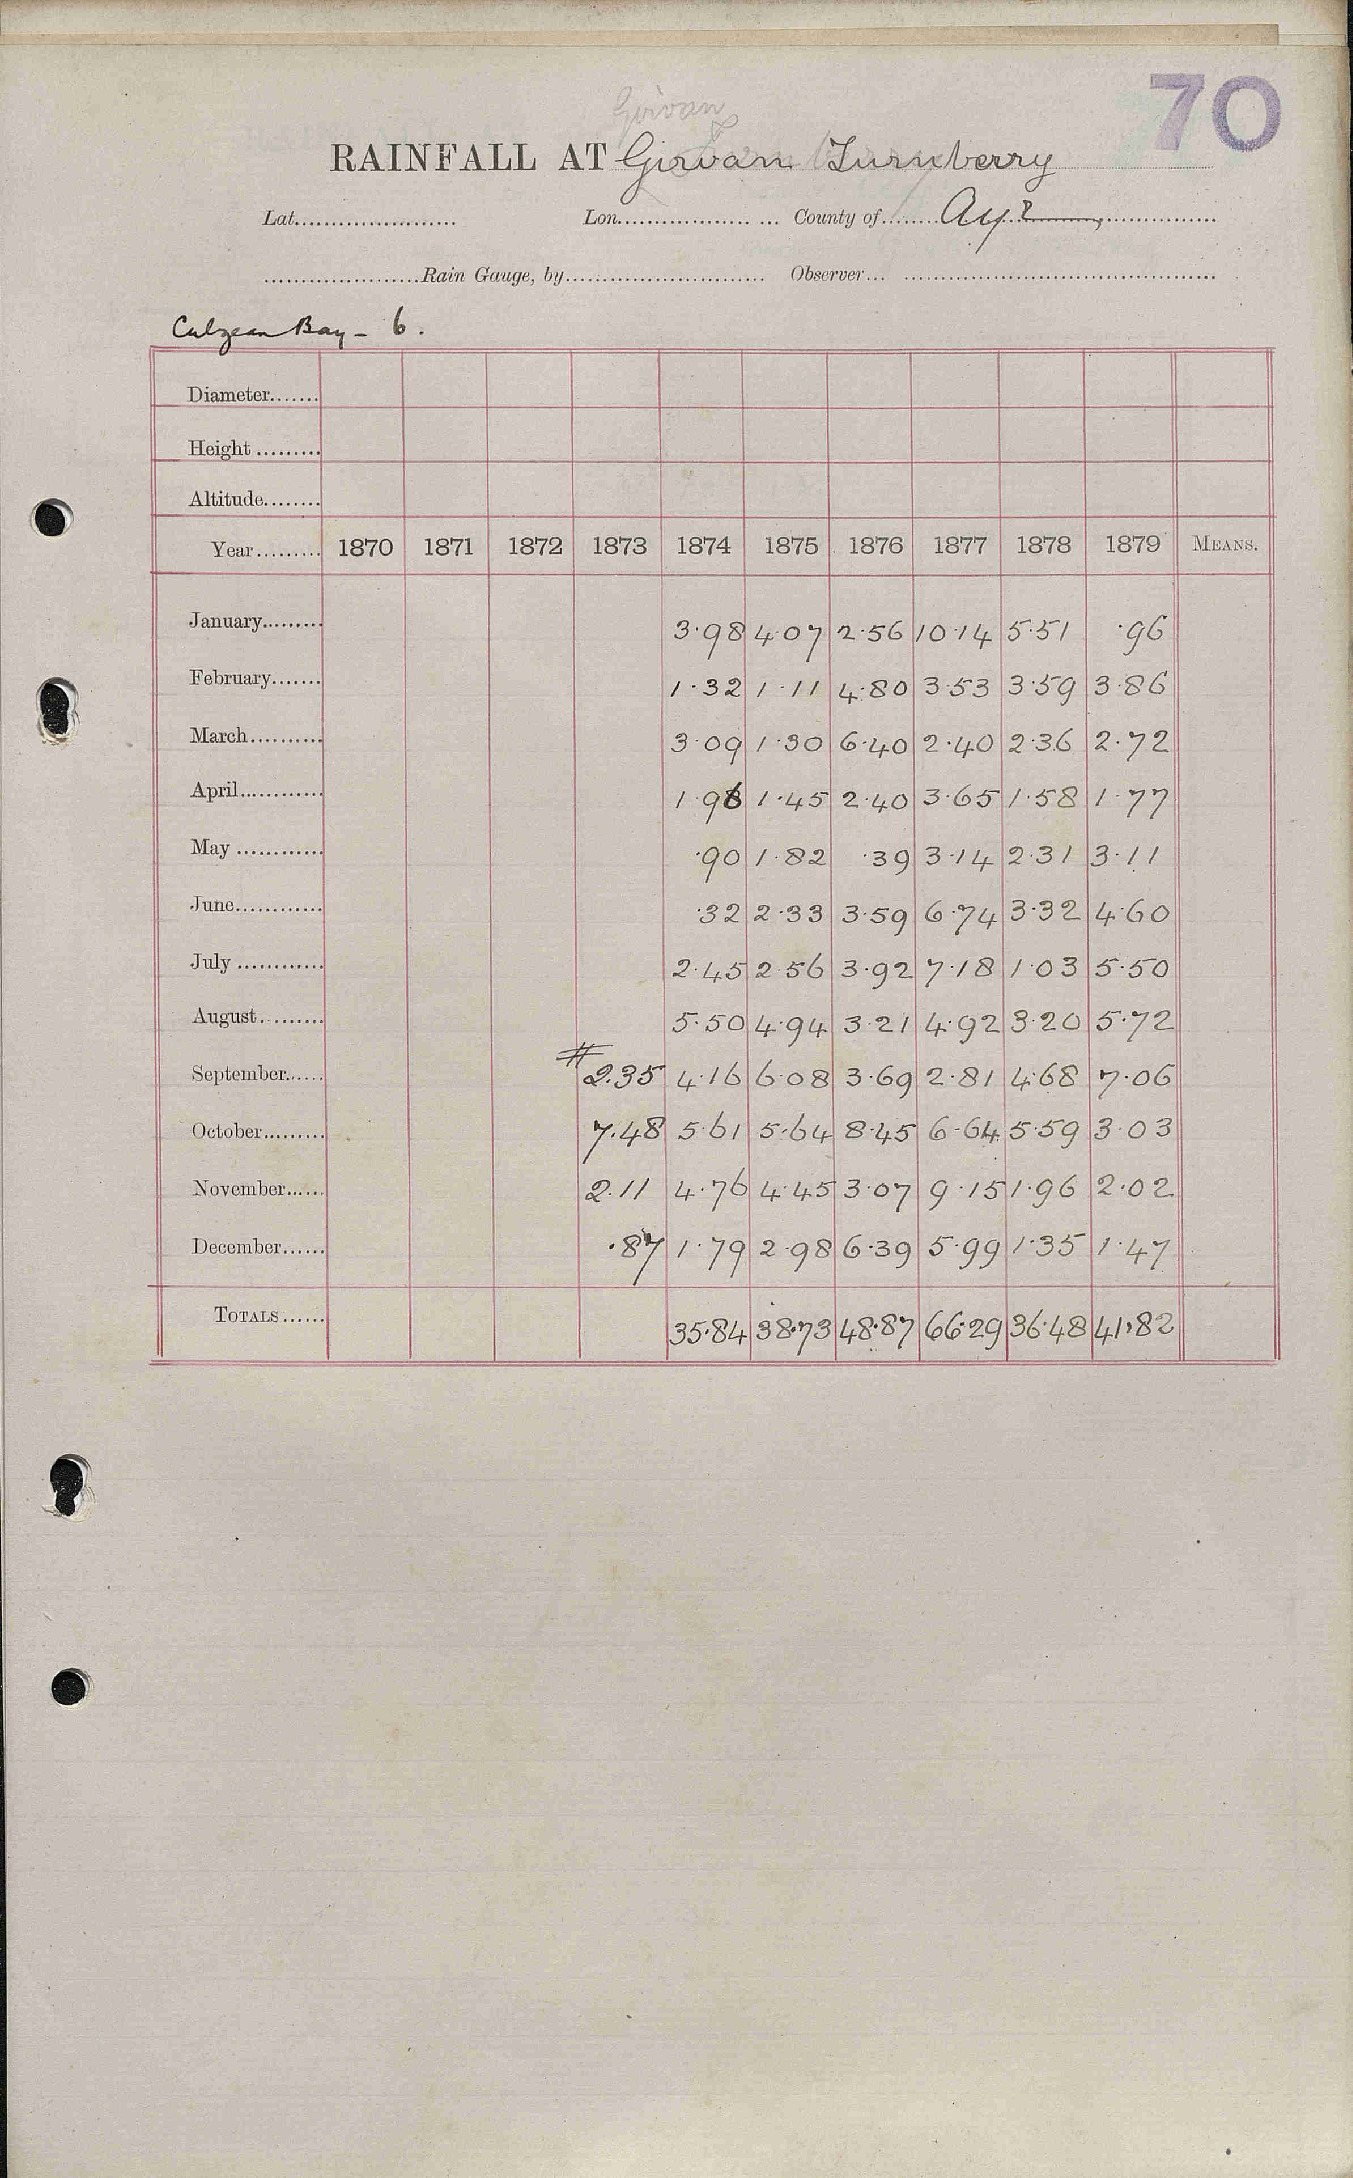 70
Girvan
RAINFALL AT Girvan Turnberry
Lat. Lon. County of Ayr
Rain Gauge, by Observer
Culzean Bay - 6.
Diameter
Height
Altitude
Year 1870 1871 1872 1873 1874 1875 1876 1877 1878 1879 MEANS.
January 3·98 4·07 2·56 10·14 5·51 ·96
February 1·32 1·11 4·80 3·53 3·59 3·86
March 3·09 1·30 6·40 2·40 2·36 2·72
April 1·96 1·45 2·40 3·65 1·58 1·77
May ·90 1·82 ·39 3·14 2·31 3·11
June ·32 2·33 3·59 6·74 3·32 4·60
July 2·45 2·56 3·92 7·18 1·03 5·50
August 5·50 4·94 3·21 4·92 3·20 5·72
September # 2.35 4·16 6·08 3·69 2·81 4·68 7·06
October 7.48 5·61 5·64 8·45 6·64 5·59 3·03
November 2.11 4·76 4·45 3·07 9·15 1·96 2·02
December ·87 1·79 2·98 6·39 5·99 1·35 1·47
TOTALS 35·84 38·73 48·87 66·29 36·48 41·82